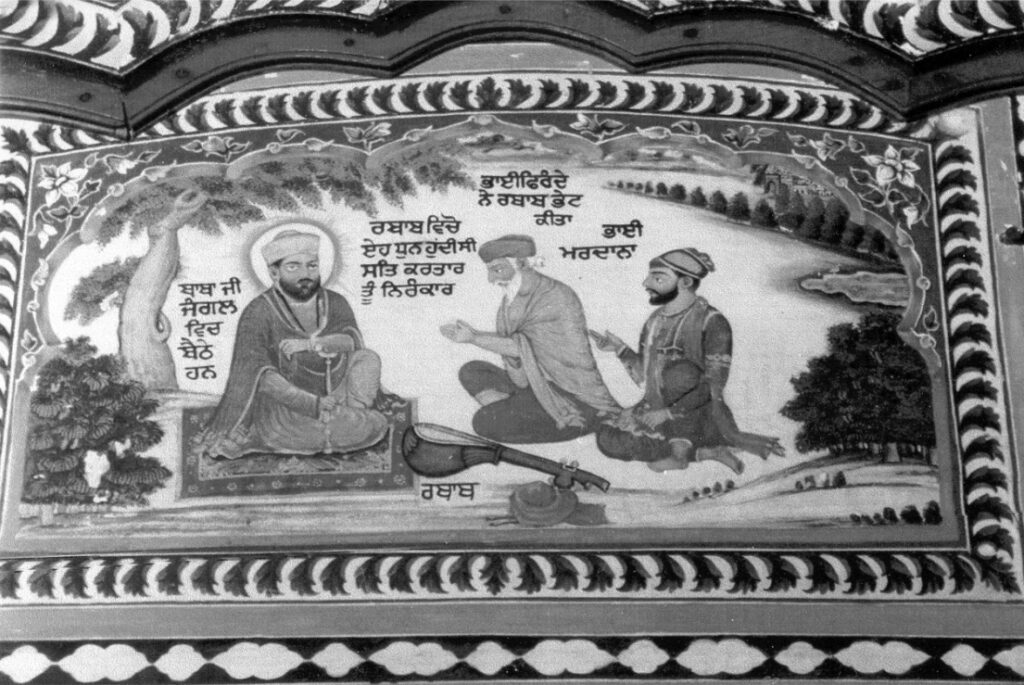 ਬਾਬਾ ਜੀ
ਜੰਗਲ
ਵਿਚ
ਬੈਠੇ
ਹਨ
ਰਬਾਬ ਵਿੱਚੋ
ਏਹ ਧੁਨ ਹੁੰਦੀ ਸੀ
ਸਤਿ ਕਰਤਾਰ
ਤੂੰ ਨਿਰੰਕਾਰ
ਭਾਈ ਫਿਰੰਦੇ
ਨੇ ਰਬਾਬ ਭੇਟ
ਕੀਤਾ
ਭਾਈ
ਮਰਦਾਨਾ
ਰਬਾਬ